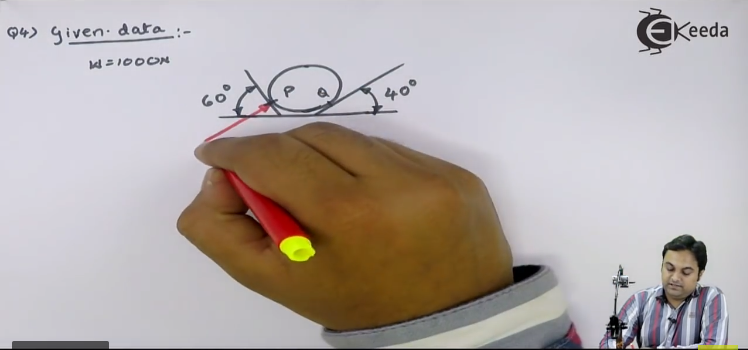 Q4) Given data :-
W=1000N
60°
P
Q
40°
EKeeda